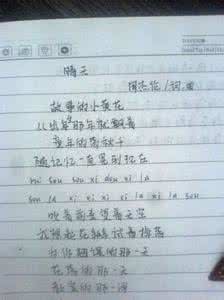 晴天
周杰伦/词.曲
故事的小黄花
从出生那年就飘着
童年的荡秋千
随记忆一直晃到现在
sou sou xi dou xi la
sou la xi xi xi xi la xi la sou
吹着前奏望着天空
我想起花瓣试着掉落
为你翘课的那一天
花落的那一天
教室的那一